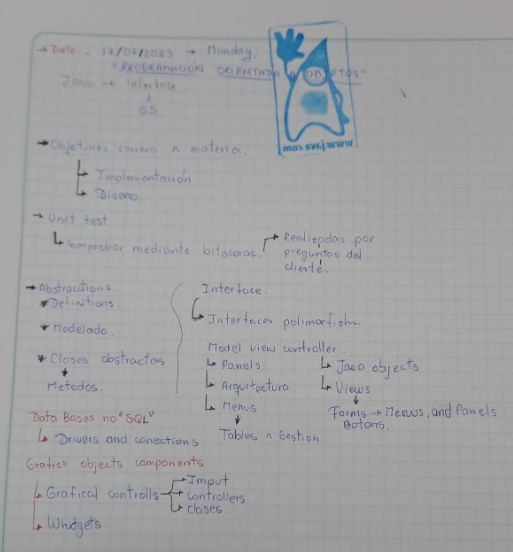 → Date - 17/07/2023 → Monday.
"PROGRAMACIÓN ORIENTADA A OBJETOS"
Java →
↓
OS
www.java.com
→ Objetivos carrera n materia.
↳ Implementación
↳ Diseño.
→ Unit test
↳ Comprobar mediante bitacoras. → Realizadas por
preguntas del
cliente.
→ Abstractions.
Definitions.
Modelado.
Clases abstractas
↓
Metodos.
Interface.
↳ Interfaces polimorfism
Model view controller.
↳ Panels
↳ Arquitectura
↳ Menus
↓
Tables n Gestion.
↳ Java objects
↳ Views
↓
Forms → Menus, and Panels
Botons.
Data Bases no "SQL"
↳ Drivers and conections
Grafics objects components
↳ Grafical controlls → Imput
→ controllers
→ clases.
↳ Whidgets